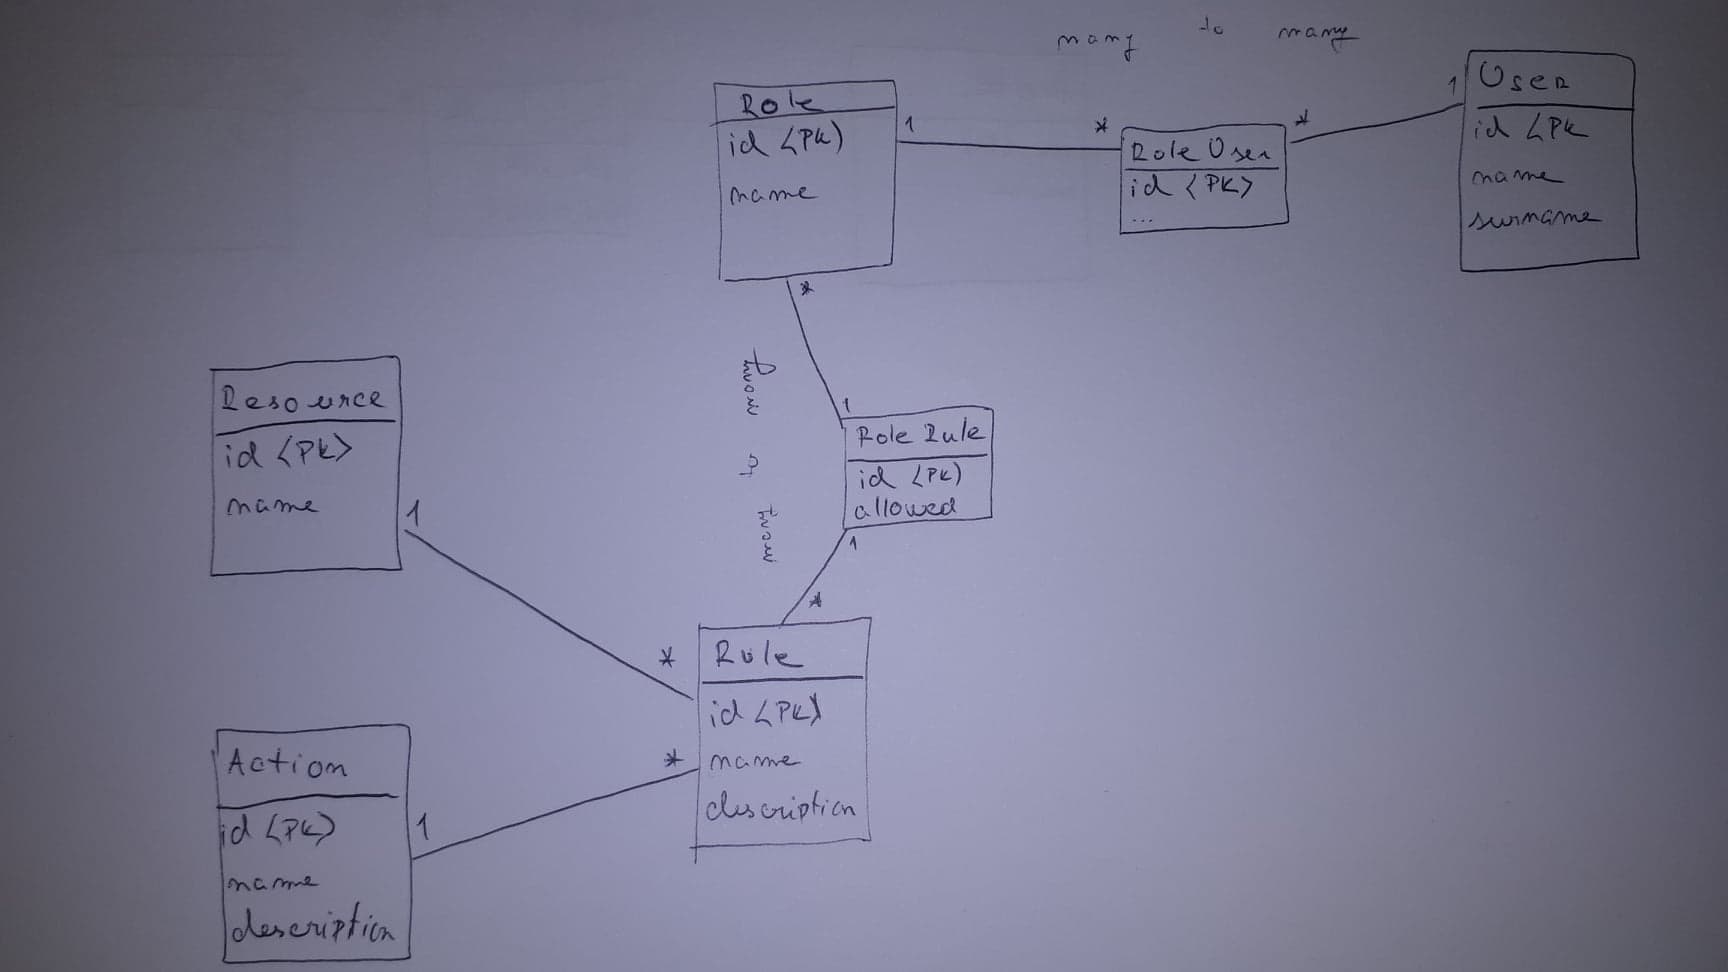 many to many
Role
id <PK>
name
1
*
Role User
id <PK>
...
*
1
User
id <PK
name
surname
*
many to many
1
Role Rule
id <PK>
allowed
1
*
Resource
id <PK>
name
1
*
Rule
id <PK>
name
description
*
Action
id <PK>
name
description
1